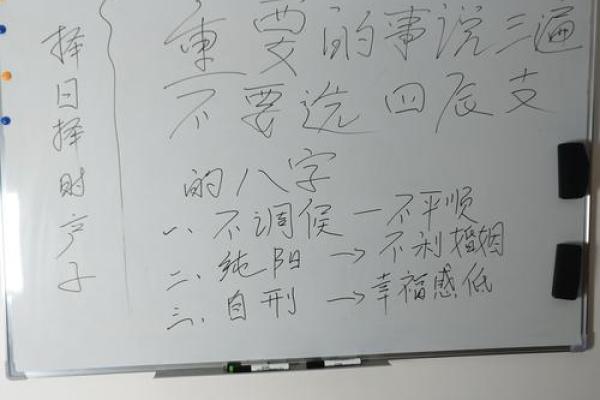 择日择时产子
重要的事说三遍
不要选四辰支
的八字
一、不调候一不平顺
二、纯阳→不利婚姻
三、自刑→幸福感低